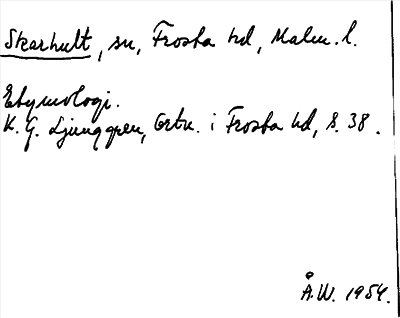 Skarhult, sn, Frosta hd, Malm. l.
Etymologi.
K. G. Ljunggren, Ortn. i Frosta hd, s. 38.
Å.W. 1954.